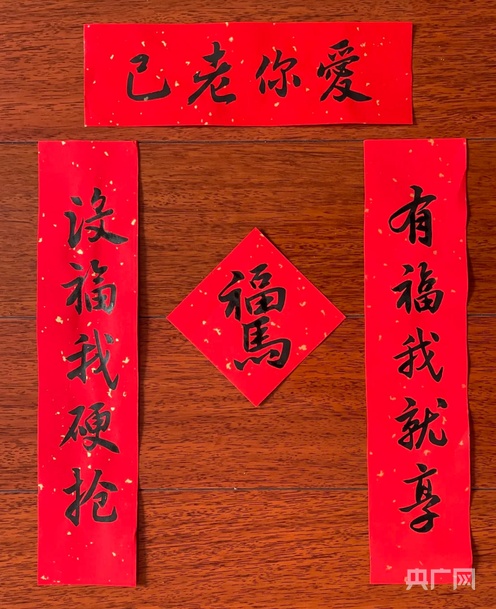 愛你老己
有福我就享
没福我硬抢
福馬
央广网